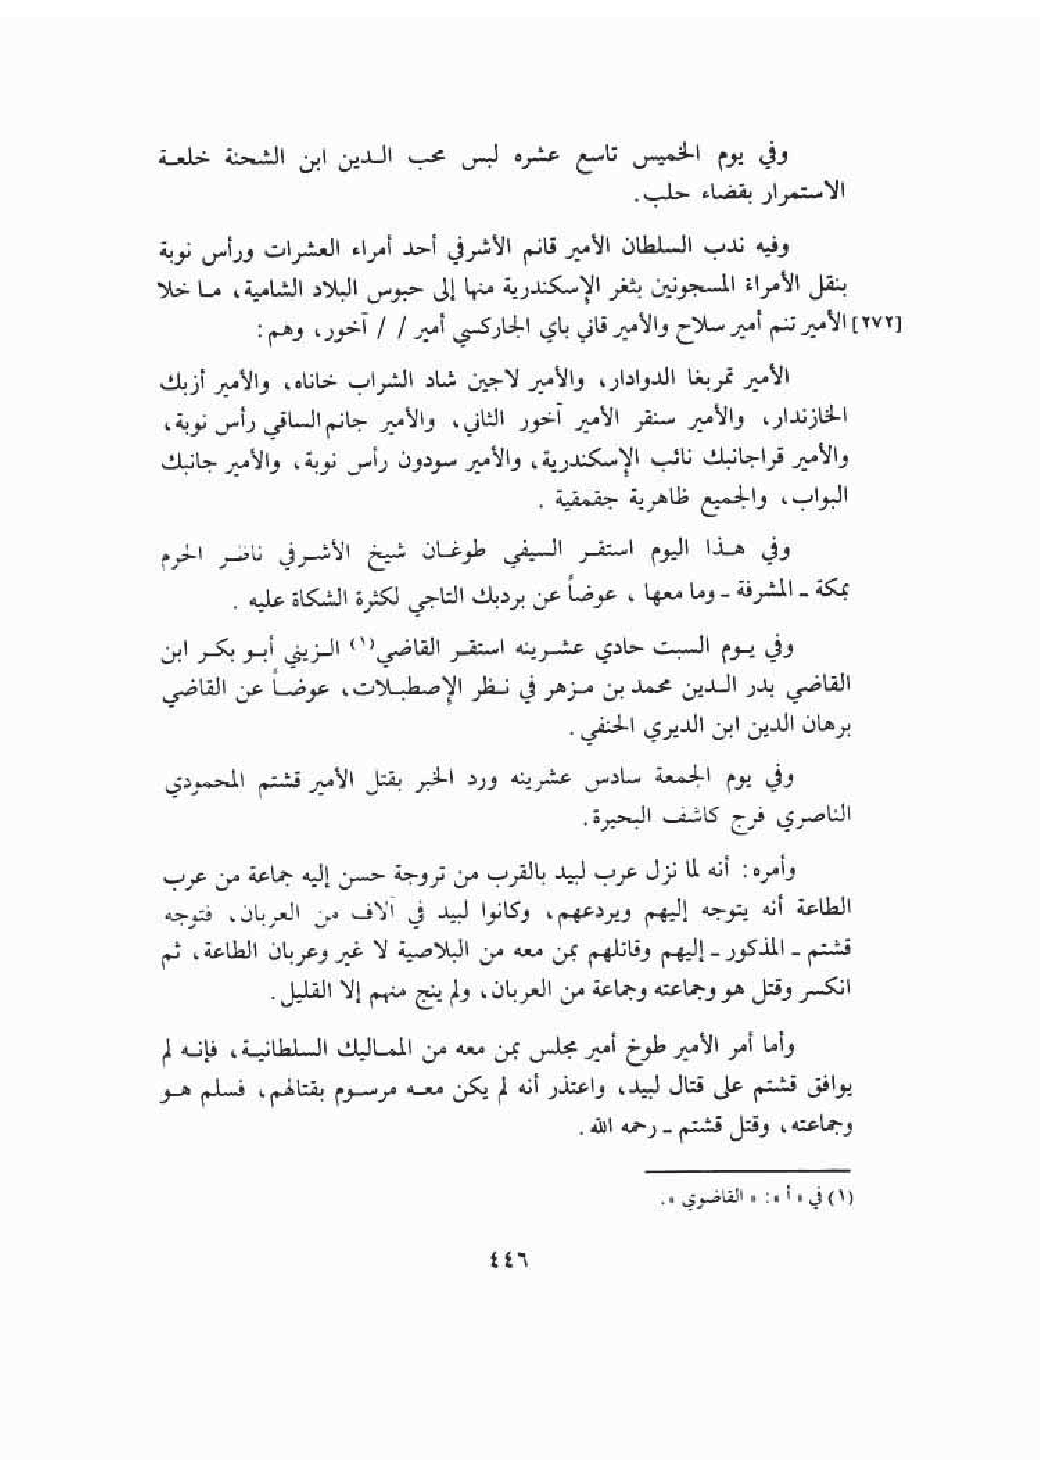 وفي يوم الخميس تاسع عشره لبس محب الدين ابن الشحنة خلعة
الاستمرار بقضاء حلب.
وفيه ندب السلطان الأمير قانم الأشرفي أحد أمراء العشرات ورأس نوبة
بنقل الأمراء المسجونين بثغر الإسكندرية منها إلى حبوس البلاد الشامية، ما خلا
[٢٧٢] الأمير تنم أمير سلاح والأمير قاني باي الجاركسي أمير / / آخور، وهم:
الأمير تمربغا الدوادار، والأمير لاجين شاد الشراب خاناه، والأمير أزبك
الخازندار، والأمير سنقر الأمير آخور الثاني، والأمير جانم الساقي رأس نوبة،
والأمير قراجانبك نائب الإسكندرية، والأمير سودون رأس نوبة، والأمير جانبك
البواب، والجميع ظاهرية جقمقية .
وفي هذا اليوم استقر السيفي طوغان شيخ الأشرفي ناظر الحرم
بمكة ـ المشرفة ـ وما معها ، عوضاً عن بردبك التاجي لكثرة الشكاة عليه .
وفي يوم السبت حادي عشرينه استقر القاضي(١) الزيني أبو بكر ابن
القاضي بدر الدين محمد بن مزهر في نظر الإصطبلات، عوضاً عن القاضي
برهان الدين ابن الديري الحنفي.
وفي يوم الجمعة سادس عشرينه ورد الخبر بقتل الأمير قشتم المحمودي
الناصري فرج كاشف البحيرة.
وأمره: أنه لما نزل عرب لبيد بالقرب من تروجة حسن إليه جماعة من عرب
الطاعة أنه يتوجه إليهم ويردعهم، وكانوا لبيد في آلاف من العربان، فتوجه
قشتم ـ المذكور ـ إليهم وقاتلهم بمن معه من البلاصية لا غير وعربان الطاعة، ثم
انكسر وقتل هو وجماعته وجماعة من العربان، ولم ينج منهم إلا القليل.
وأما أمر الأمير طوخ أمير مجلس بمن معه من المماليك السلطانية، فإنه لم
يوافق قشتم على قتال لبيد، واعتذر أنه لم يكن معه مرسوم بقتالهم، فسلم هو
وجماعته، وقتل قشتم ـ رحمه الله .
(١) في «أ»: «القاضوي».
٤٤٦